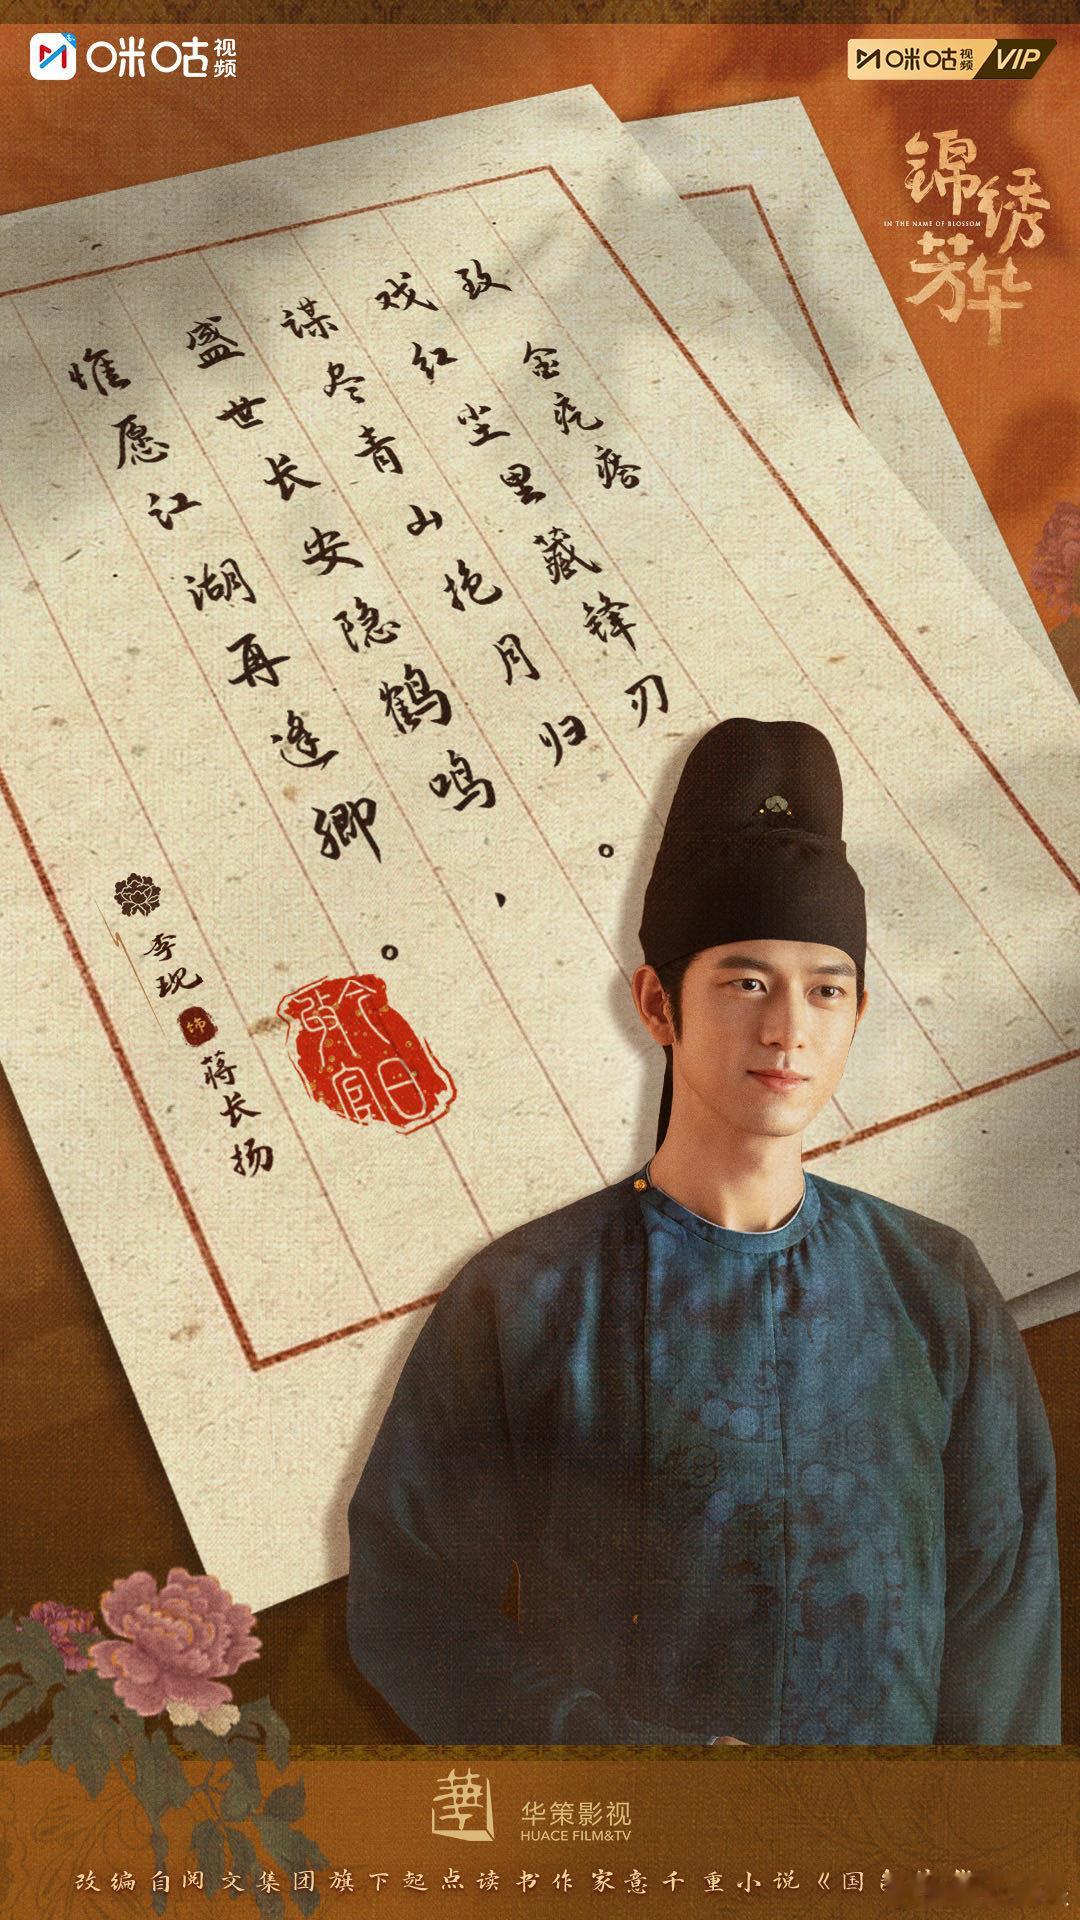 咪咕视频
咪咕视频 VIP
锦绣芳华
IN THE NAME OF BLOSSOM
致 金疙瘩
戏红尘里藏锋刃
谋尽青山抱月归。
盛世长安隐鹤鸣、
惟愿江湖再逢卿。
李现 饰 蒋长扬
今日
官
华策影视
HUACE FILM&TV
改编自阅文集团旗下起点读书作家意千重小说《国